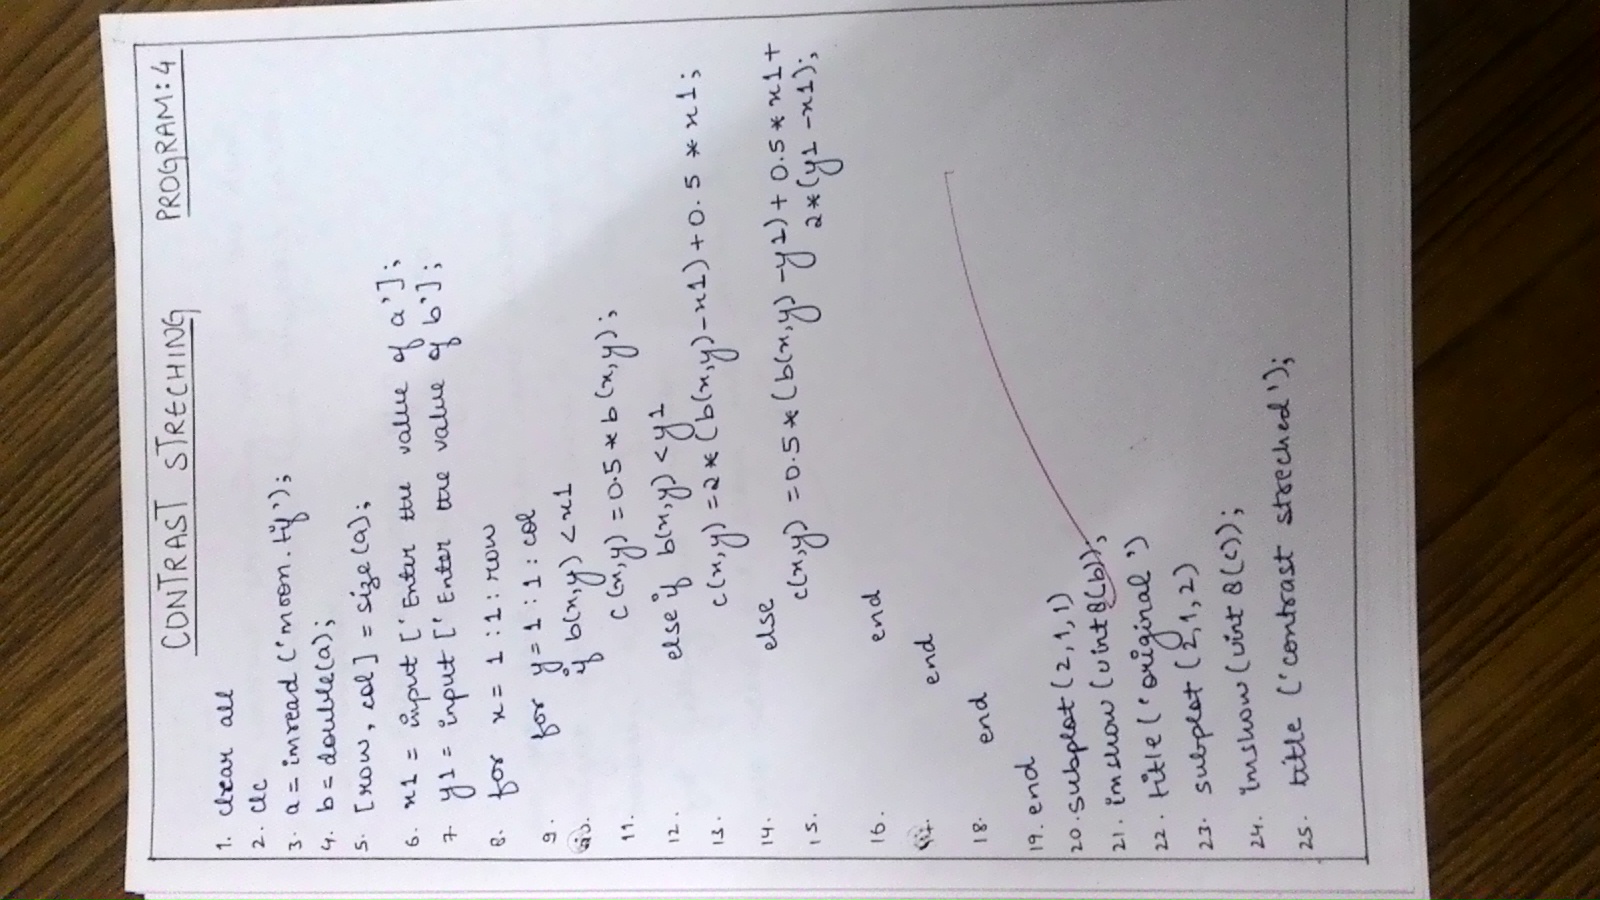 CONTRAST STRECHING PROGRAM: 4
1. clear all
2. clc
3. a = imread ('moon.tif');
4. b = double(a);
5. [row, col] = size(a);
6. x1 = input ['Enter the value of a'];
7. y1 = input ['Enter the value of b'];
8. for x = 1 : 1 : row
9. for y = 1 : 1 : col
10. if b(x,y) < x1
11. c(x,y) = 0.5 * b(x,y);
12. else if b(x,y) < y1
13. c(x,y) = 2 * (b(x,y) - x1) + 0.5 * x1;
14. else
15. c(x,y) = 0.5 * (b(x,y) - y1) + 0.5 * x1 +
2 * (y1 - x1);
16. end
17. end
18. end
19. end
20. subplot (2,1,1)
21. imshow (uint 8(b));
22. title ('original')
23. subplot (2,1,2)
24. imshow (uint 8(c));
25. title ('contrast streched');